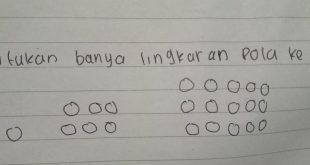 tukan banya lingkaran Pola ke